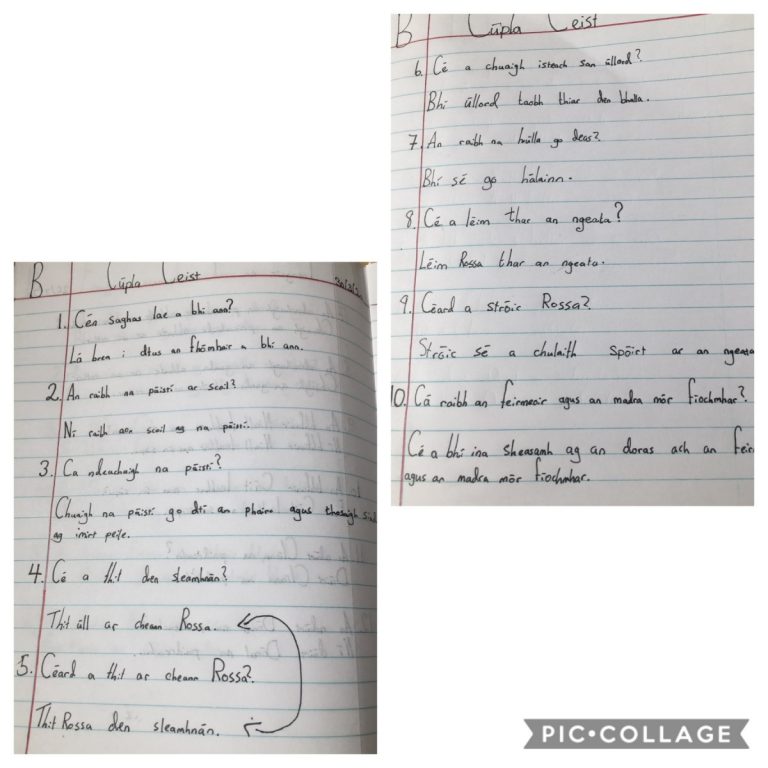 B Cúpla Ceist
1. Cén saghas lae a bhí ann?
Lá brea i dtus an fhómhair a bhí ann.
2. An raibh na páistí ar scoil?
Ní raibh aon scoil ag na páistí.
3. Ca ndeachaigh na páistí?
Chuaigh na páistí go dtí an phairc agus thosaigh siad
ag imirt peile.
4. Cé a thit den sleamhnán?
Thit úll ar cheann Rossa.
5. Céard a thit ar cheann Rossa?
Thit Rossa den sleamhnán.
B Cúpla Ceist
6. Cé a chuaigh isteach san úllord?
Bhí úllord taobh thiar den bhalla.
7. An raibh na húlla go deas?
Bhí sé go hálainn.
8. Cé a léim thar an ngeata?
Léim Rossa thar an ngeata.
9. Céard a stróic Rossa?
Stróic sé a chulaith spóirt ar an ngeata
10. Cá raibh an feirmeoir agus an madra mór fíochmhar?
Cé a bhí ina sheasamh ag an doras ach an feir
agus an madra mór fíochmhar.
PIC•COLLAGE